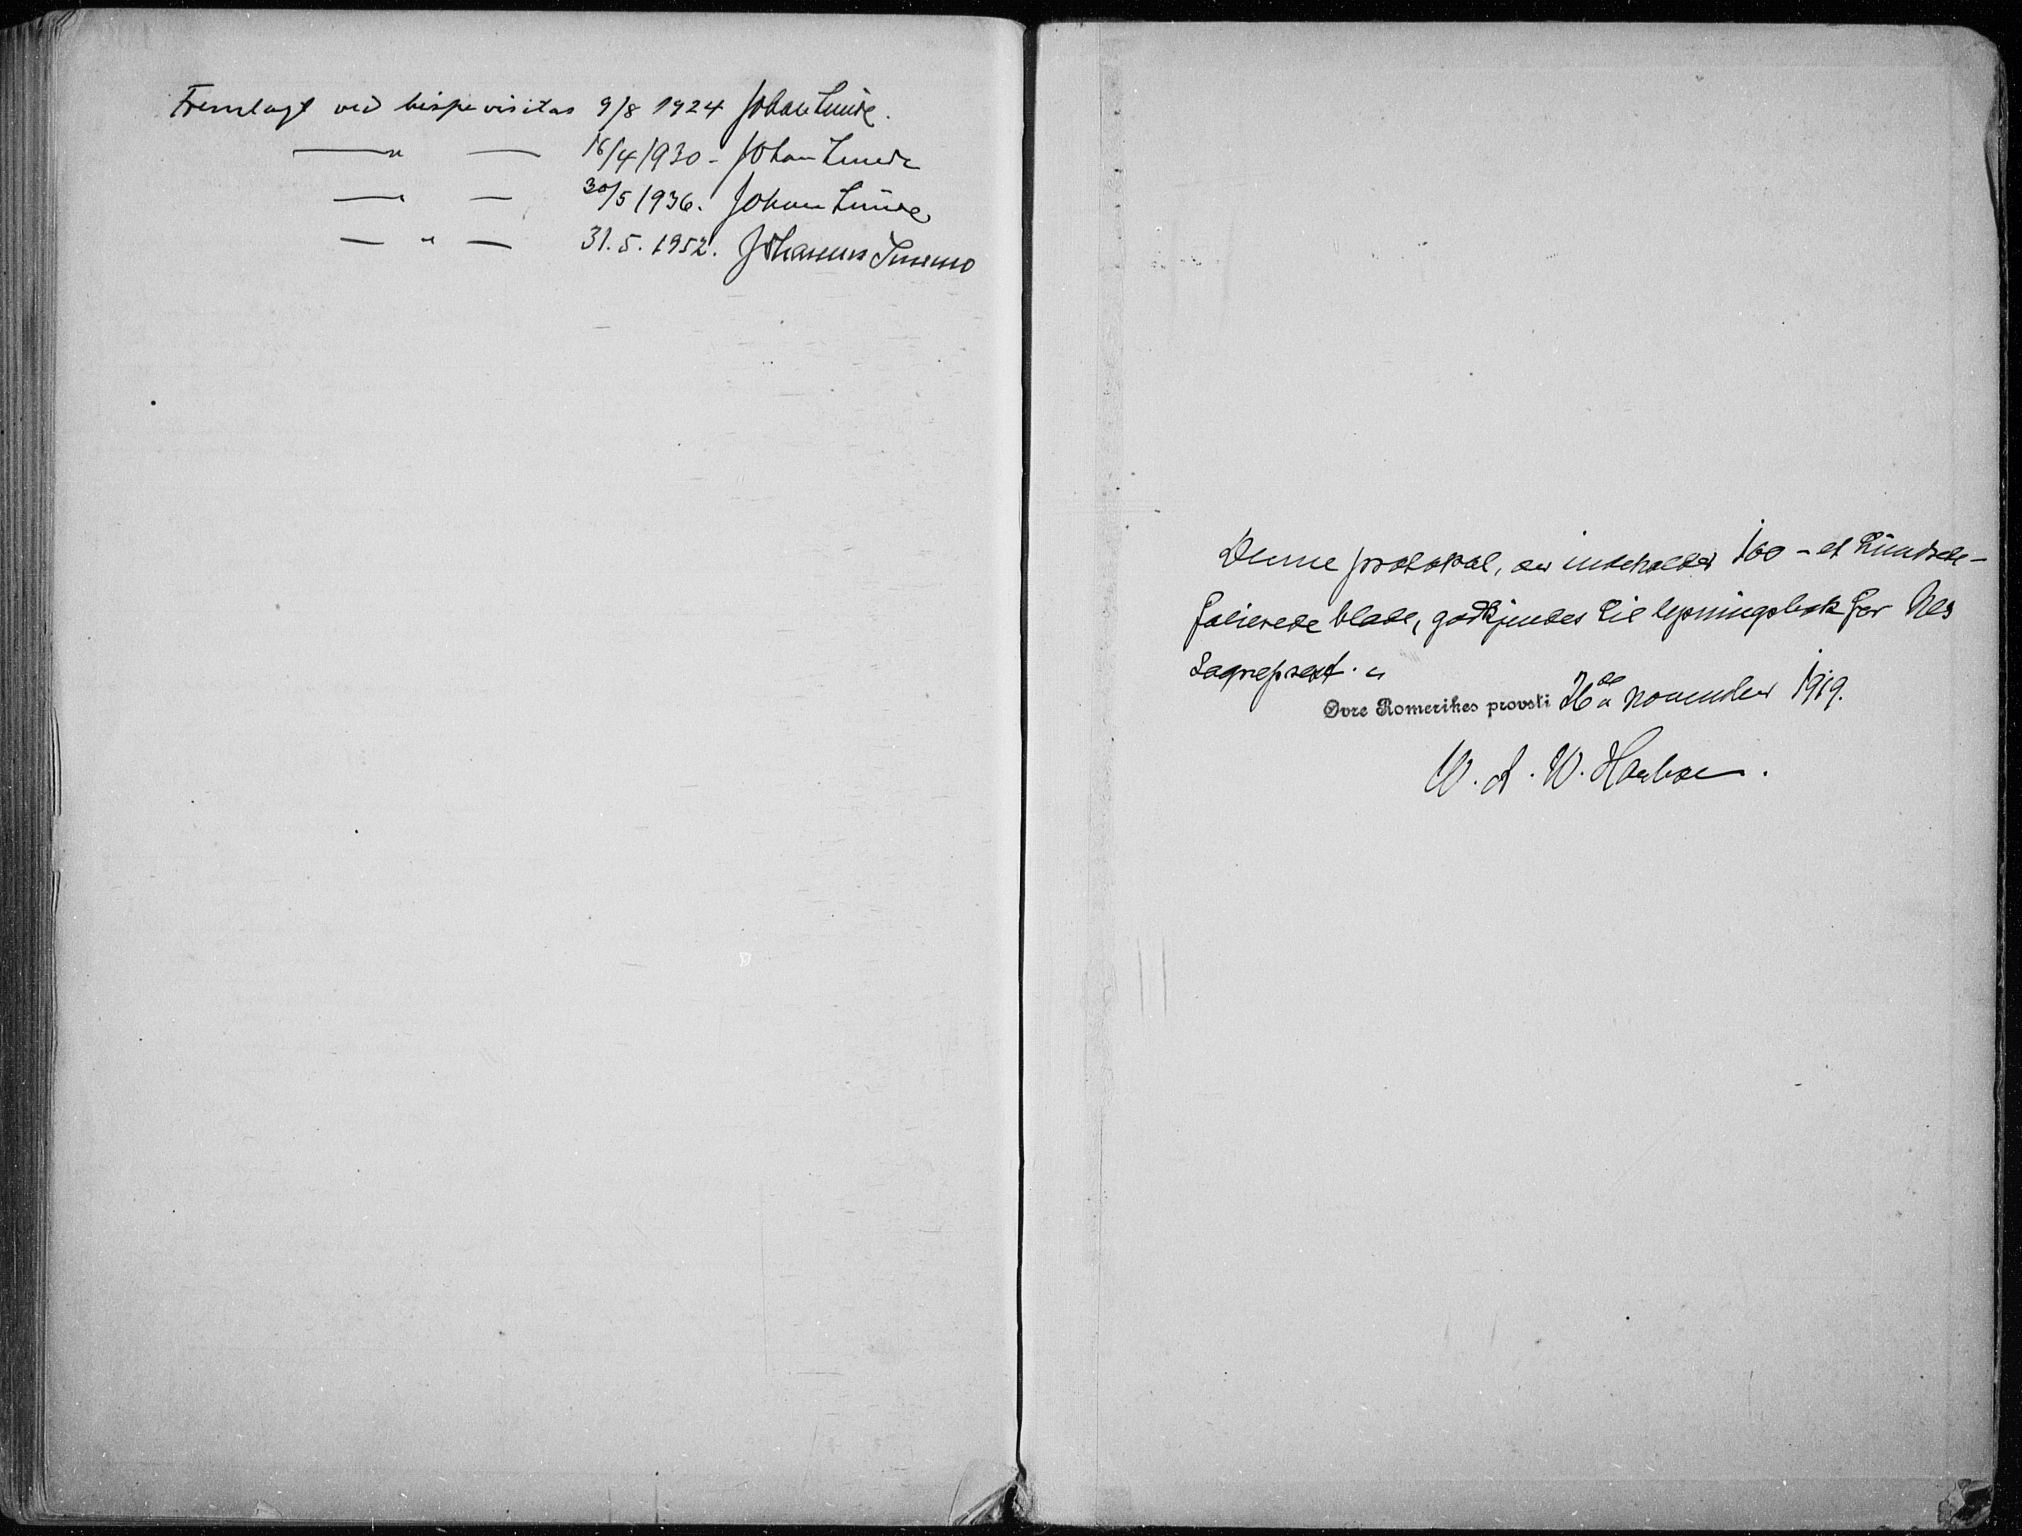 Fremlagt ved bispevisitas 9/8 1924 Johan Lunde.
— " — 16/4 1930 - Johan Lunde
— " — 30/5 1936. Johan Lunde.
— " — 31. 5. 1952. Johannes Smemo
Denne protokol, der indeholder 100 - et hundrede -
folierede blade, godkjendes til lysningsbok for Nes
sogneprest. "
Øvre Romerikes provsti 26de november 1919.
W. A. W. Harboe.